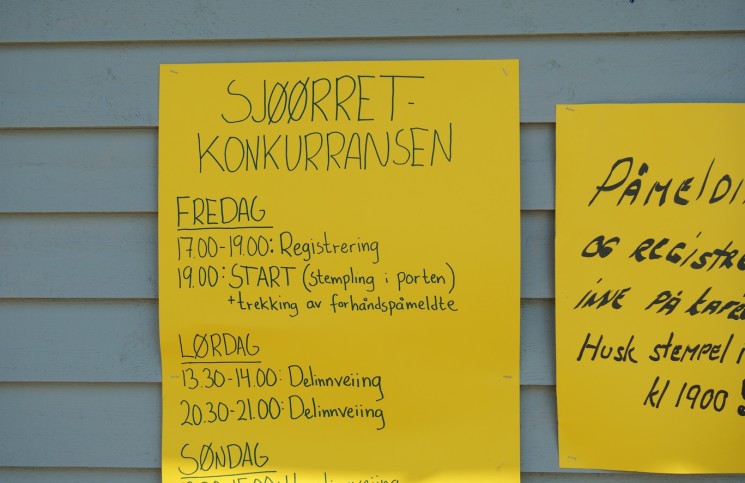 SJØØRRET-
KONKURRANSEN
FREDAG
17.00-19.00: Registrering
19.00: START (stempling i porten)
+trekking av forhåndspåmeldte
LØRDAG
13.30-14.00: Delinnveiing
20.30-21.00: Delinnveiing
SØNDAG
PÅMELDI
OG REGISTRE
INNE PÅ KAFE
Husk STEMPEL
kl 1900